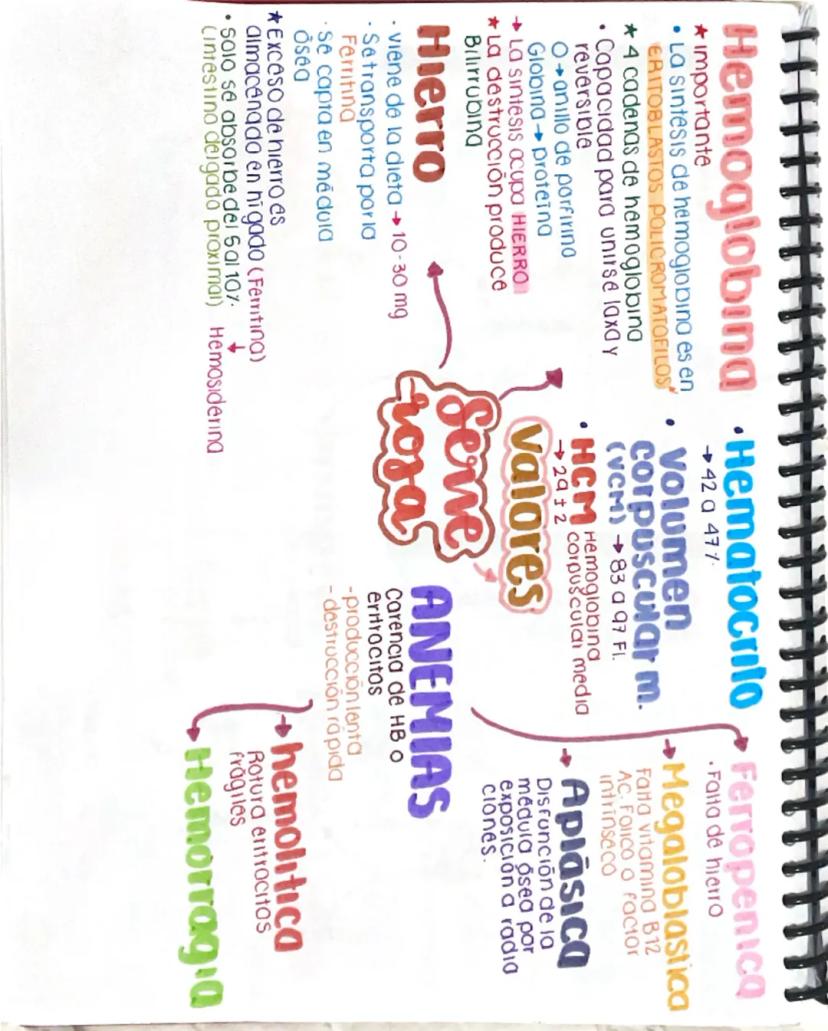 Hemoglobina
★ Importante
• La sintesis de hemoglobina es en
ERITOBLASTOS POLICROMATOFILOS"
★ 4 cadenas de hemoglobina
• Capacidad para unirse laxa y
reversible
O→anillo de porfirina
Globina→ Proteína
→ La sintesis ocupa HIERRO
★ La destrucción produce
Bilirrubina
Hierro
• viene de la dieta → 10-30 mg
• Se transporta por la
Ferritina
• Se capra en médula
ósea
★ Exceso de hierro es
almacenado en hígado (Ferritina)
• Solo se absorbe del 5 al 10%.
(intestino delgado proximal)
Hemosiderina
Serie
roja
Valores
• Hematocrito
→ 42 a 47%
• Volumen
corpuscular m.
(VCM) → 83 a 97 Fl.
• HCM Hemoglobina
corpuscular media
→ 29 ± 2
ANEMIAS
Carencia de HB o
eritrocitos
- producción lenta
- destrucción rápida
Ferropenica
• Falta de hierro
Megaloblastica
Falta vitamina B12
Ac. Folico o Factor
intrinseco
Aplásica
Disfonción de la
médula ósea por
exposición a radia
ciones.
hemolitica
Rotura eritrocitos
frágiles
Hemorragia